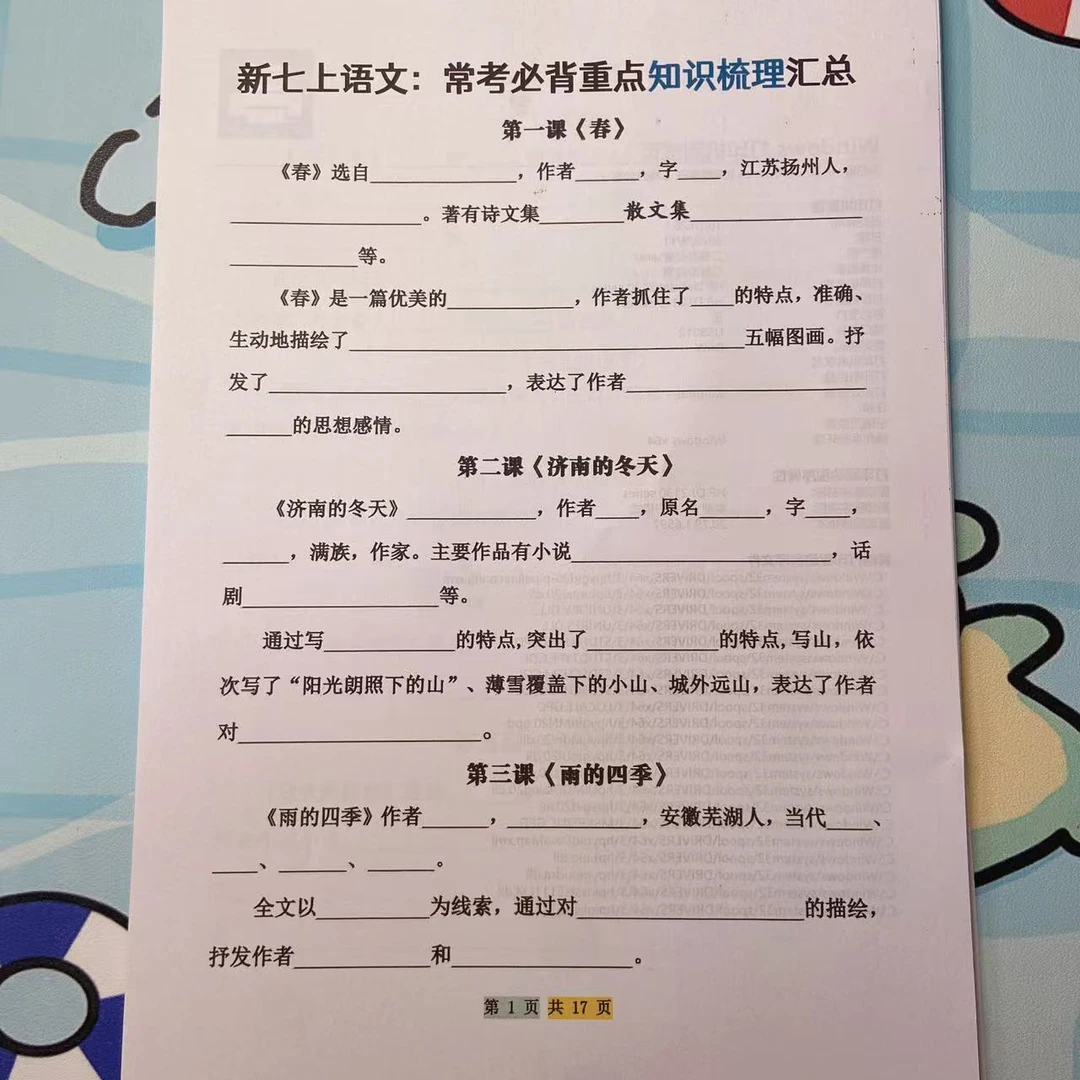 新七上语文：常考必背重点知识梳理汇总
第一课《春》
《春》选自______________，作者______，字____，江苏扬州人，
__________________。著有诗文集________散文集________________
____________等。
《春》是一篇优美的____________，作者抓住了____的特点，准确、
生动地描绘了______________________________________五幅图画。抒
发了______________________，表达了作者______________________
______的思想感情。
第二课《济南的冬天》
《济南的冬天》____________，作者____，原名______，字____，
______，满族，作家。主要作品有小说________________________，话
剧__________________等。
通过写____________的特点,突出了____________的特点,写山，依
次写了“阳光朗照下的山”、薄雪覆盖下的小山、城外远山，表达了作者
对______________________。
第三课《雨的四季》
《雨的四季》作者______，____________，安徽芜湖人，当代____、
____、______、______。
全文以__________为线索，通过对____________________的描绘，
抒发作者____________和________________。
第 1 页 共 17 页